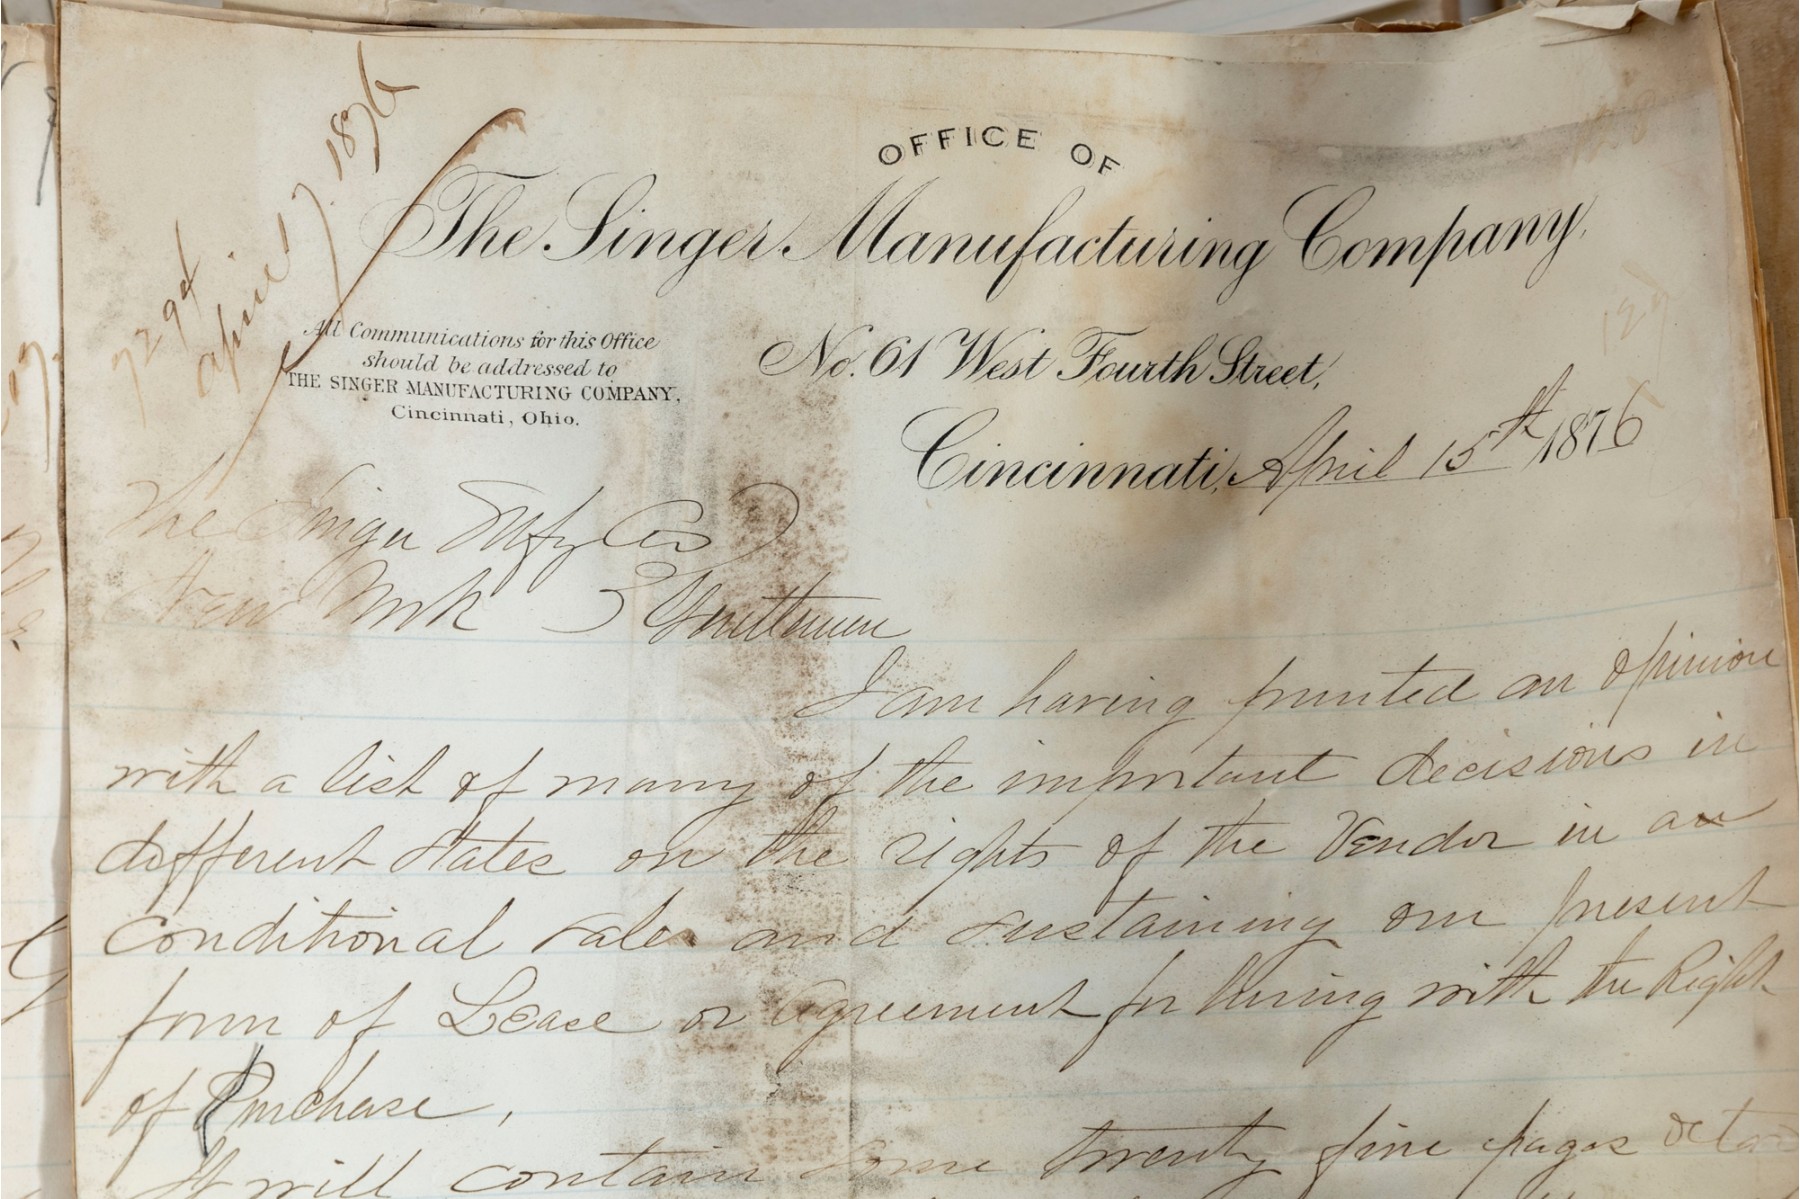 april 17. 1876
OFFICE OF
The Singer Manufacturing Company,
All Communications for this Office
should be addressed to
THE SINGER MANUFACTURING COMPANY,
Cincinnati, Ohio.
No. 61 West Fourth Street,
Cincinnati, April 15th 1876
The Singer Mfg Co
New York Gentlemen
I am having printed an opinion
with a list of many of the important decisions in
different states on the rights of the Vendor in an
conditional sales and sustaining our present
form of Lease or Agreement for hiring with the Right
of Purchase.
It will contain some twenty five pages octavo